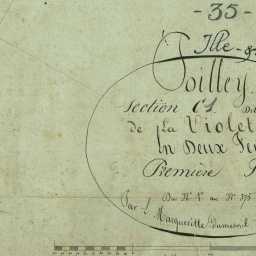 - 35 -
Ille-
Poilley.
Section C1
de La Violet
En Deux Feu
Première P
Du N° 1 au N° 375
Par L. Macqueville Dumesnil